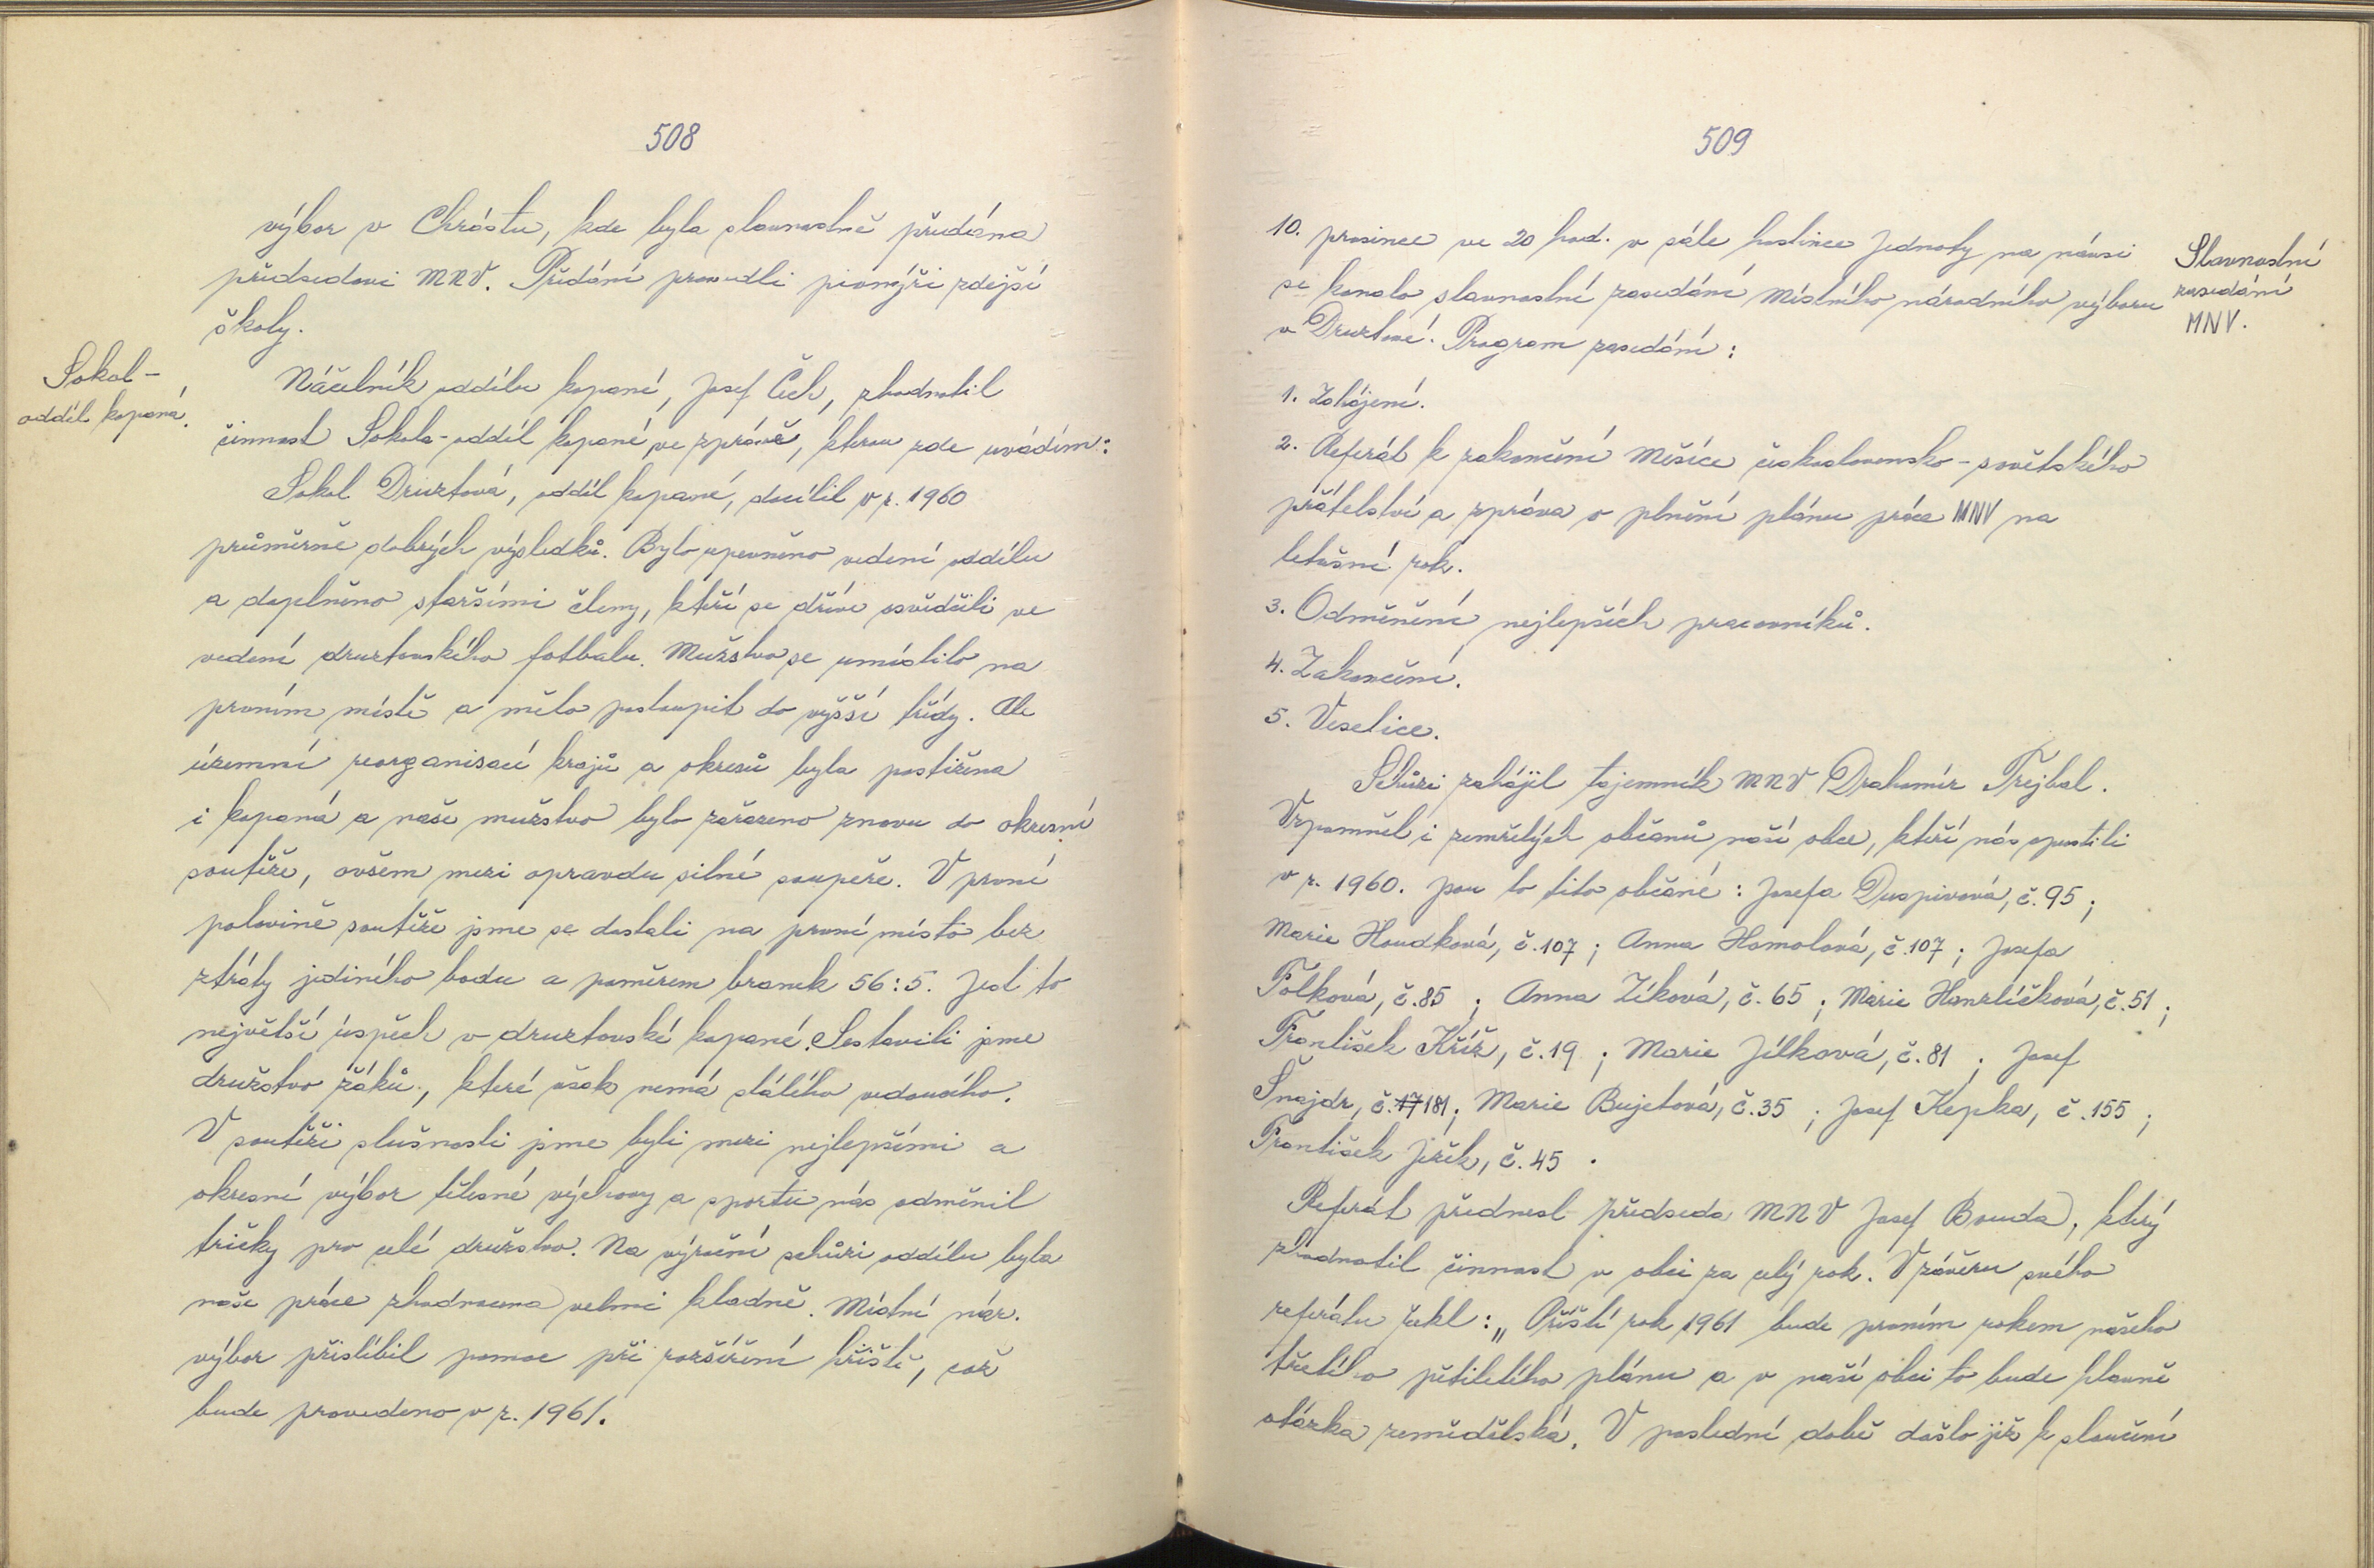 508
výbor v Chrástu, kde byla slavnostně předána
předsedovi MNV. Předání provedli pionýři zdejší
školy.
Sokol-
oddíl kopaná.
Náčelník oddílu kopané, Josef Čech, zhodnotil
činnost Sokola-oddíl kopané, ve zprávě, kterou zde uvádím:
Sokol Druztová, oddíl kopané, docílil v r. 1960
průměrně dobrých výsledků. Bylo upevněno vedení oddílu
a doplněno staršími členy, kteří se dříve osvědčili ve
vedení druztovského fotbalu. Mužstvo se umístilo na
prvním místě a mělo postoupit do vyšší třídy. Ale
územní reorganisací krajů a okresů byla postižena
i kopaná a naše mužstvo bylo zařazeno znovu do okresní
soutěže, ovšem mezi opravdu silné soupeře. V první
polovině soutěže jsme se dostali na první místo bez
ztráty jediného bodu a poměrem branek 56:5. Jest to
největší úspěch v druztovské kopané. Sestavili jsme
družstvo žáků, které však nemá stálého vedoucího.
V soutěži slušnosti jsme byli mezi nejlepšími a
okresní výbor tělesné výchovy a sportu nás odměnil
tričky pro celé družstvo. Na výroční schůzi oddílu byla
naše práce zhodnocena velmi kladně. Místní nár.
výbor přislíbil pomoc při rozšíření hřiště, což
bude provedeno v r. 1961.
509
10. prosince ve 20 hod. v sále hostince Jednoty na návsi
se konalo slavnostní zasedání Místního národního výboru
v Druztové. Program zasedání:
Slavnostní
zasedání
MNV.
1. Zahájení.
2. Referát k zakončení Měsíce československo-sovětského
přátelství a zpráva o plnění plánu práce MNV na
letošní rok.
3. Odměnění nejlepších pracovníků.
4. Zakončení.
5. Veselice.
Schůzi zahájil tajemník MNV Drahomír Trejbal.
Vzpomněl i zemřelých občanů naší obce, kteří nás opustili
v r. 1960. Jsou to tito občané: Josefa Duspivová, č. 95;
Marie Houdková, č. 107; Anna Homolová, č. 107; Josefa
Folková, č. 85; Anna Zíková, č. 65; Marie Hanzlíčková, č. 51;
František Kříž, č. 19; Marie Jílková, č. 81; Josef
Šnajdr, č. 17 181; Marie Bujetová, č. 35; Josef Kepka, č. 155;
František Ježek, č. 45.
Referát přednesl předseda MNV Josef Bouda, který
zhodnotil činnost v obci za celý rok. V závěru svého
referátu řekl: „Příští rok 1961 bude prvním rokem našeho
třetího pětiletého plánu a v naší obci to bude hlavně
otázka zemědělská. V poslední době došlo již k sloučení